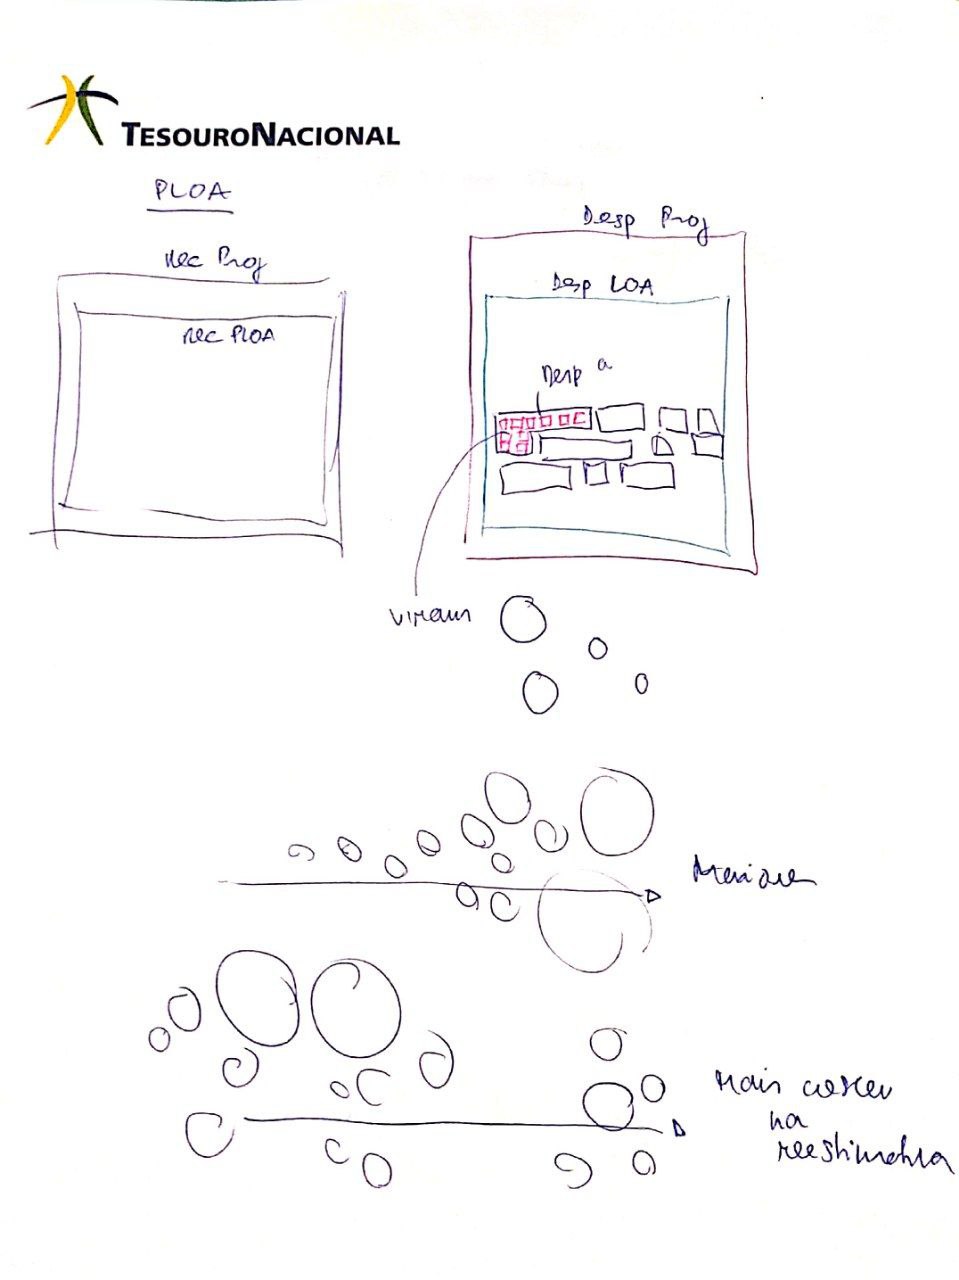 TESOURONACIONAL
PLOA
Rec Proj
Rec PLOA
Desp Proj
Desp LOA
Desp a
viram
Maiores
Mais cresceu
na
reestimativa